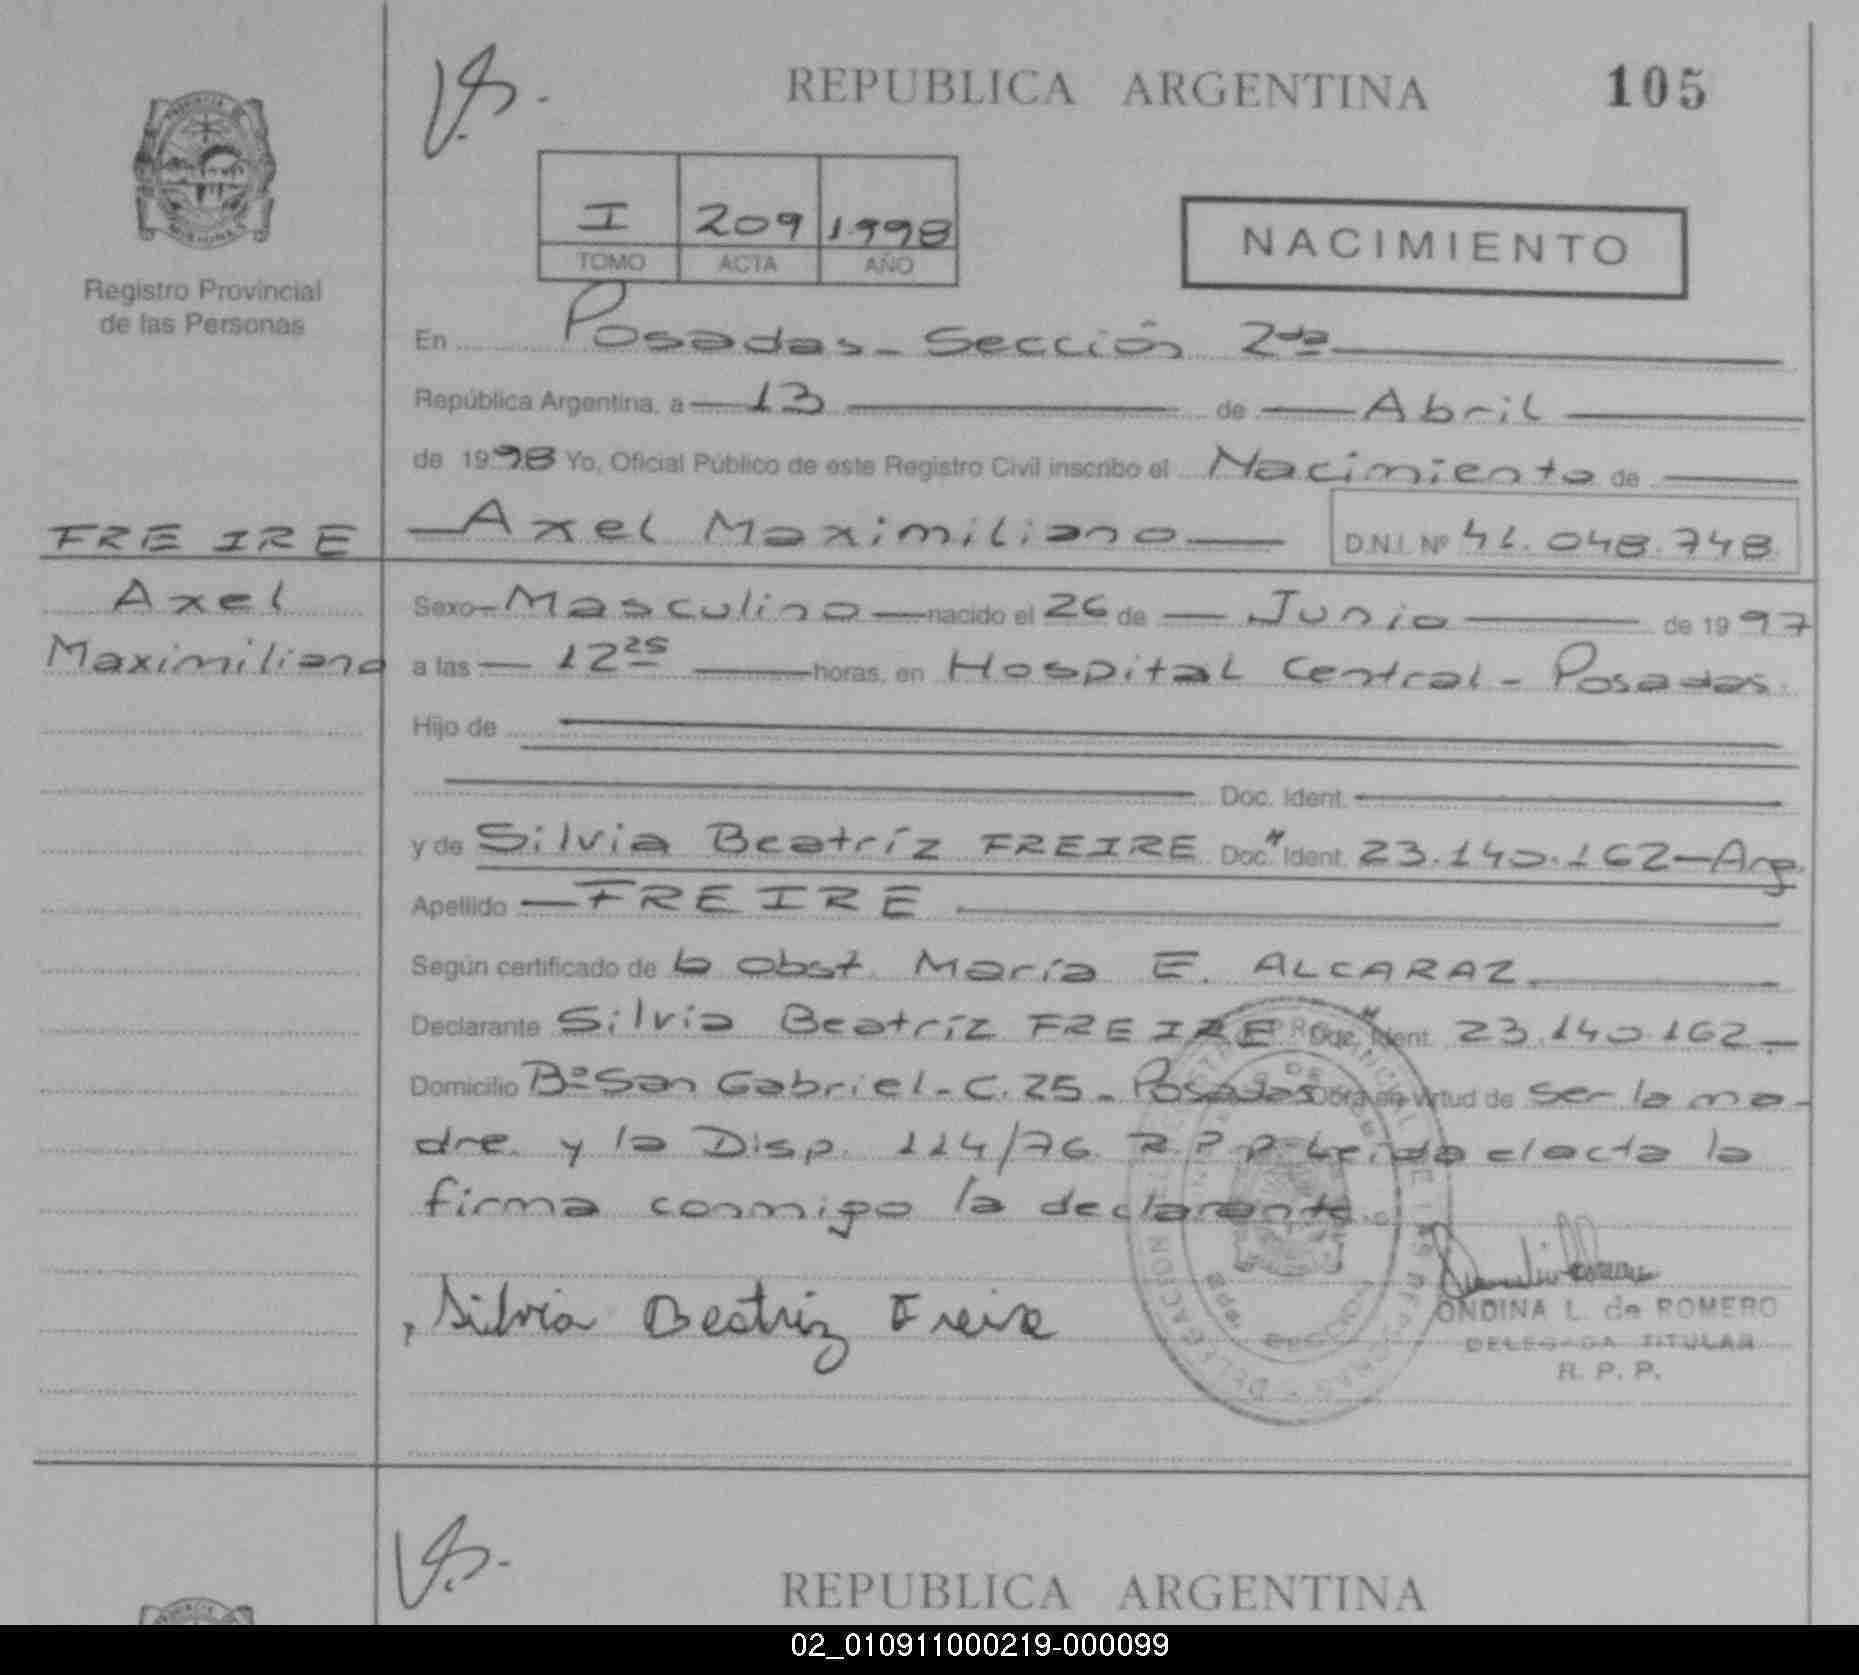 REPUBLICA ARGENTINA 105
I 209 1998
TOMO ACTA AÑO
NACIMIENTO
Registro Provincial
de las Personas
En Posadas - Sección 2da
República Argentina, a 13 de Abril
de 1998 Yo, Oficial Público de este Registro Civil inscribo el Nacimiento de
FREIRE
Axel
Maximiliano
Axel Maximiliano D.N.I. Nº 41.048.748
Sexo Masculino nacido el 26 de Junio de 1997
a las 12 25 horas, en Hospital Central - Posadas
Hijo de
Doc. Ident.
y de Silvia Beatríz FREIRE Doc. Ident. 23.140.162 - Arg.
Apellido FREIRE
Según certificado de la Obst. María E. ALCARAZ
Declarante Silvia Beatríz FREIRE Doc. Ident. 23.140.162 -
Domicilio Bº San Gabriel - C. 25 - Posadas Obra en virtud de ser la ma-
dre y la Disp. 114/76 R.P.P. Leída el acta la
firma conmigo la declarante.
Silvia Beatriz Freire
ONDINA L. de ROMERO
DELEGADA TITULAR
R. P. P.
REPUBLICA ARGENTINA
02_010911000219-000099